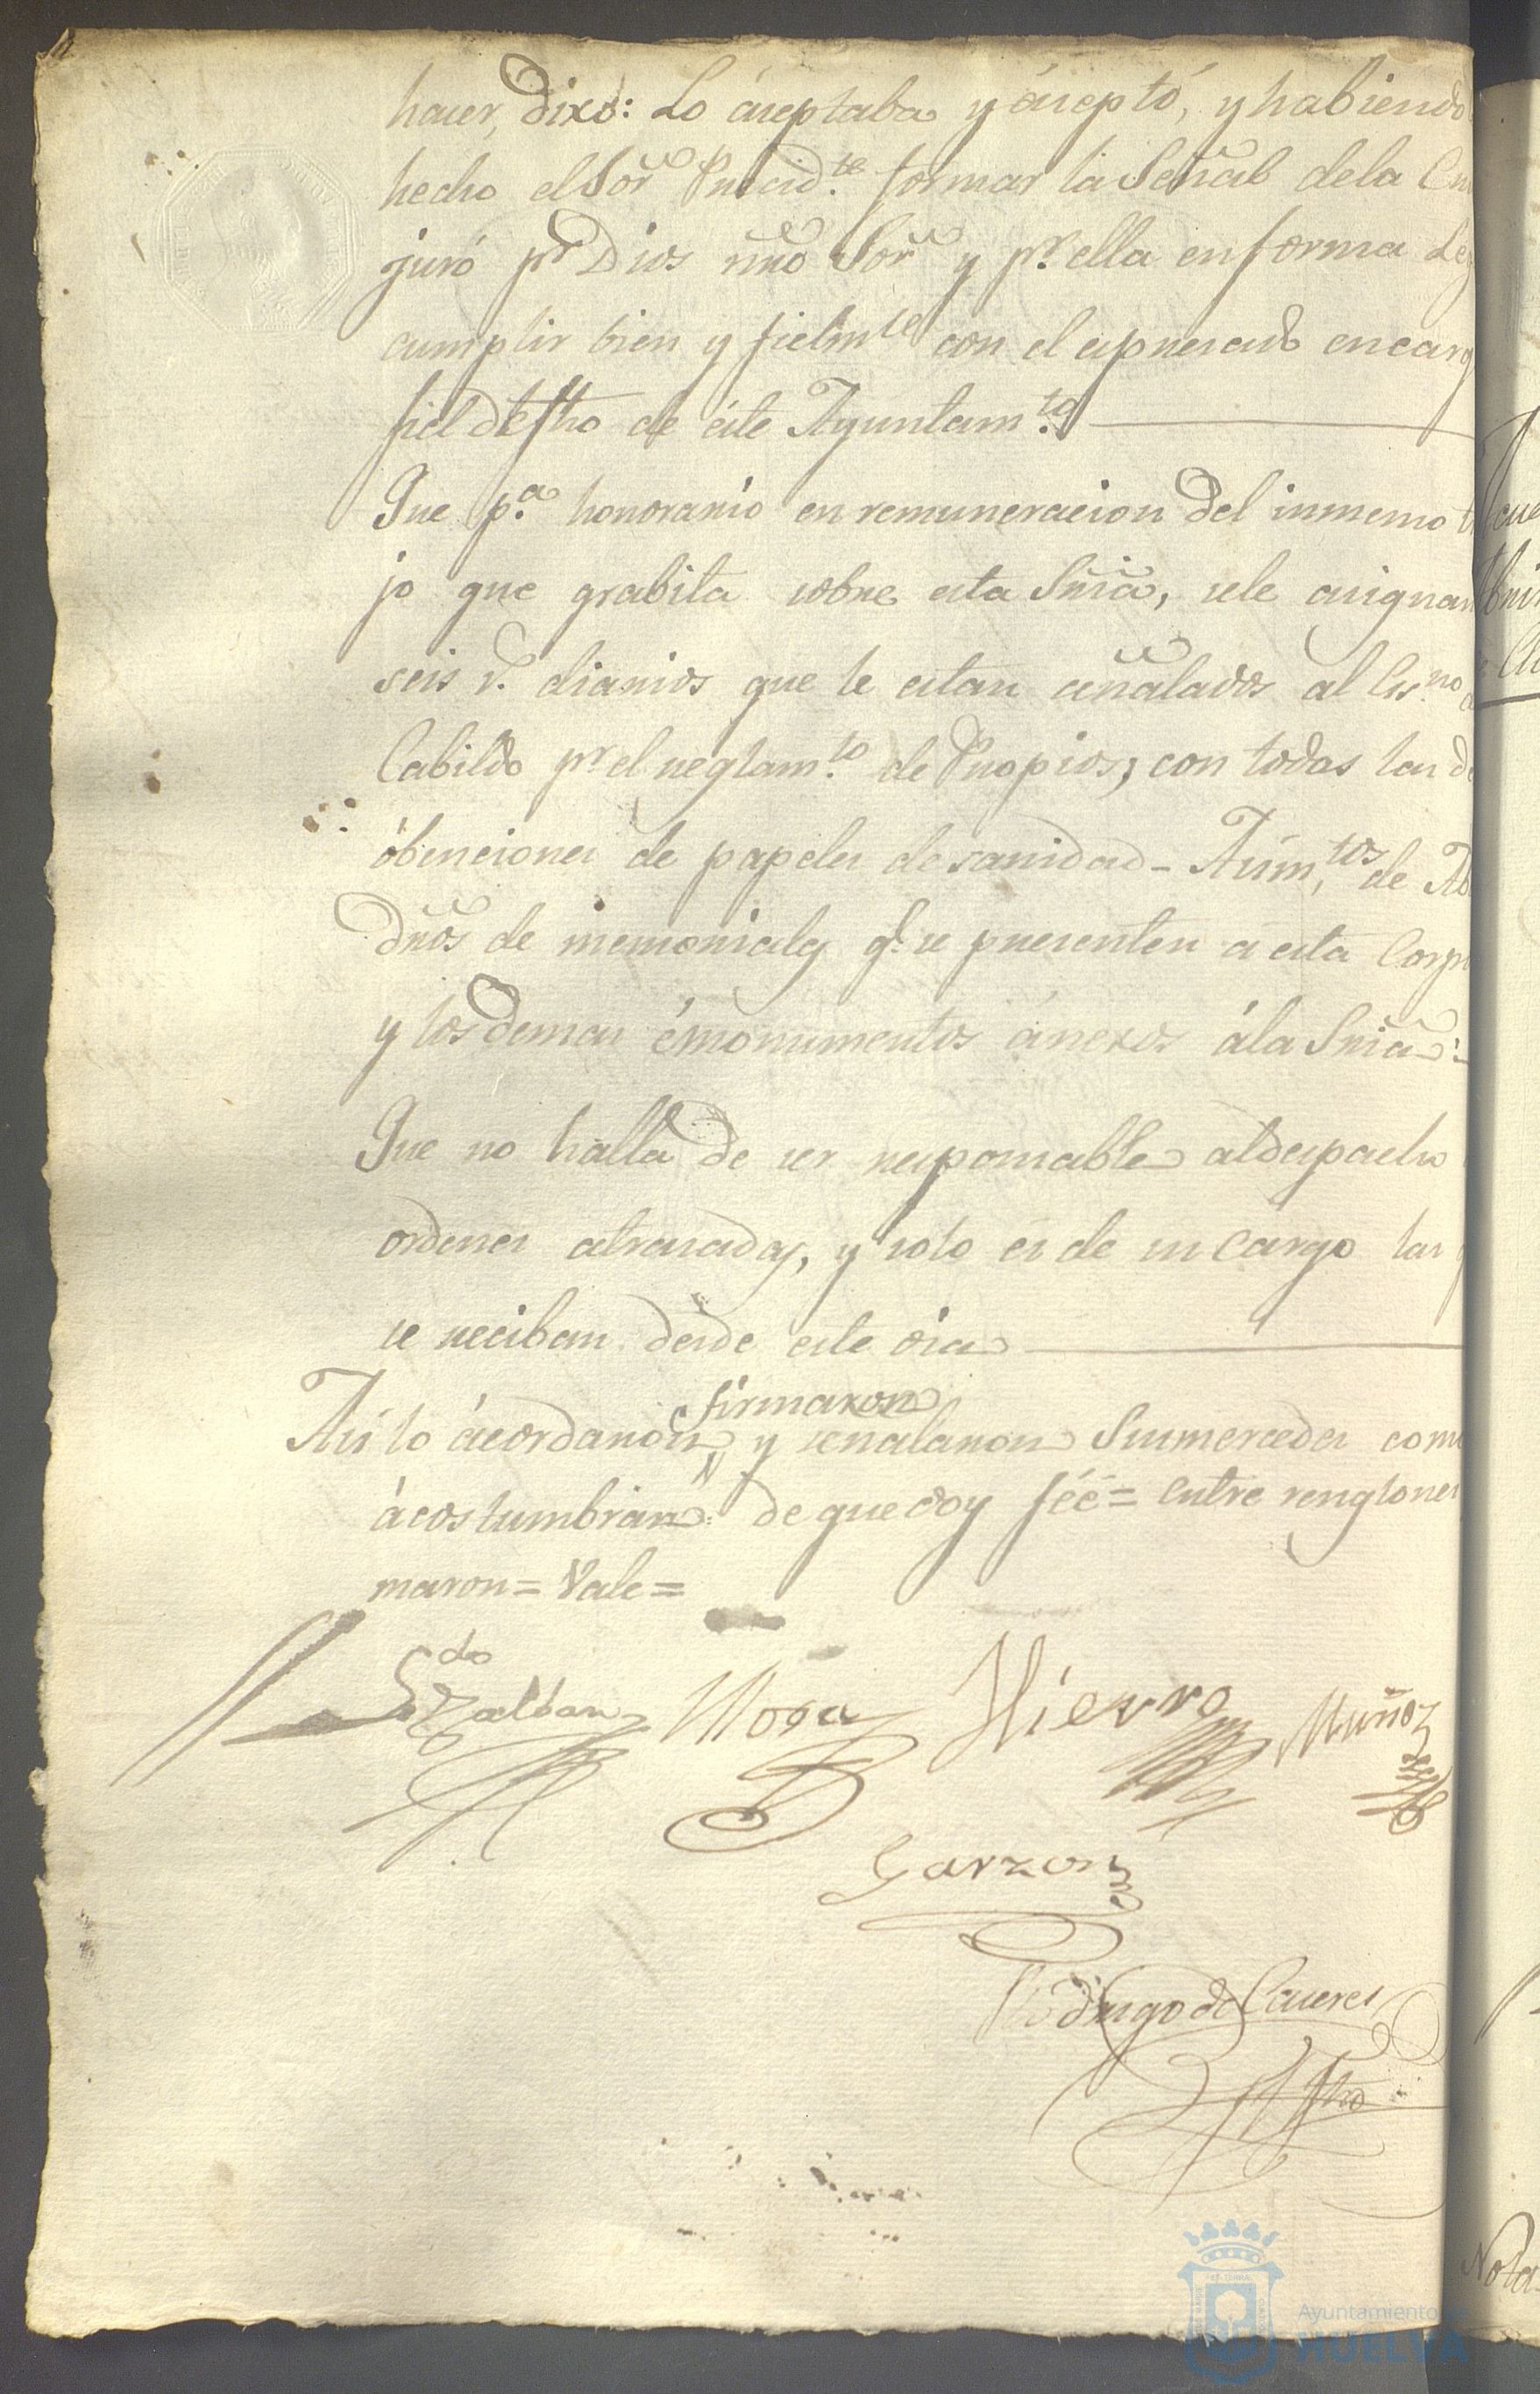 hacer, dixo: Lo áceptaba y áceptó, y habiendo
hecho el Sor̃ Precid.te formar la Señal dela Cru
juró pr Dios nño Sor̃ y pr. ella en forma Leg
cumplir bien y fielmte con el expresado encarg
fiel de fho de éste Ayuntam.to
Que p.a honorario en remuneracion del inmenso tra
jo que grabita sobre esta Sriã, sele asignan
seis r.s diarios que le estan señalados al Es.no d
Cabildo pr el reglam.to de Propios; con todas las de
óbenciones de papeles de sanidad - Asim.tos de Ab
dr̃os de memoriales q.e se presenten a esta Corpo
y los demas émonumentos ánexos ála Sriã:
Que no halla de ser responsable al despacho
ordenes atrasadas, y solo es de su cargo las q
se reciban desde este dia
firmaron
Así lo ácordaron, y señalaron Susmercedes como
ácostumbran: de que doy féé = entre renglones
maron = Vale =
Ldo
Zalban Mora Hierro Muñoz
Garzon
Rodrigo de Caceres
fho
Nota
Ayuntamiento de
HUELVA